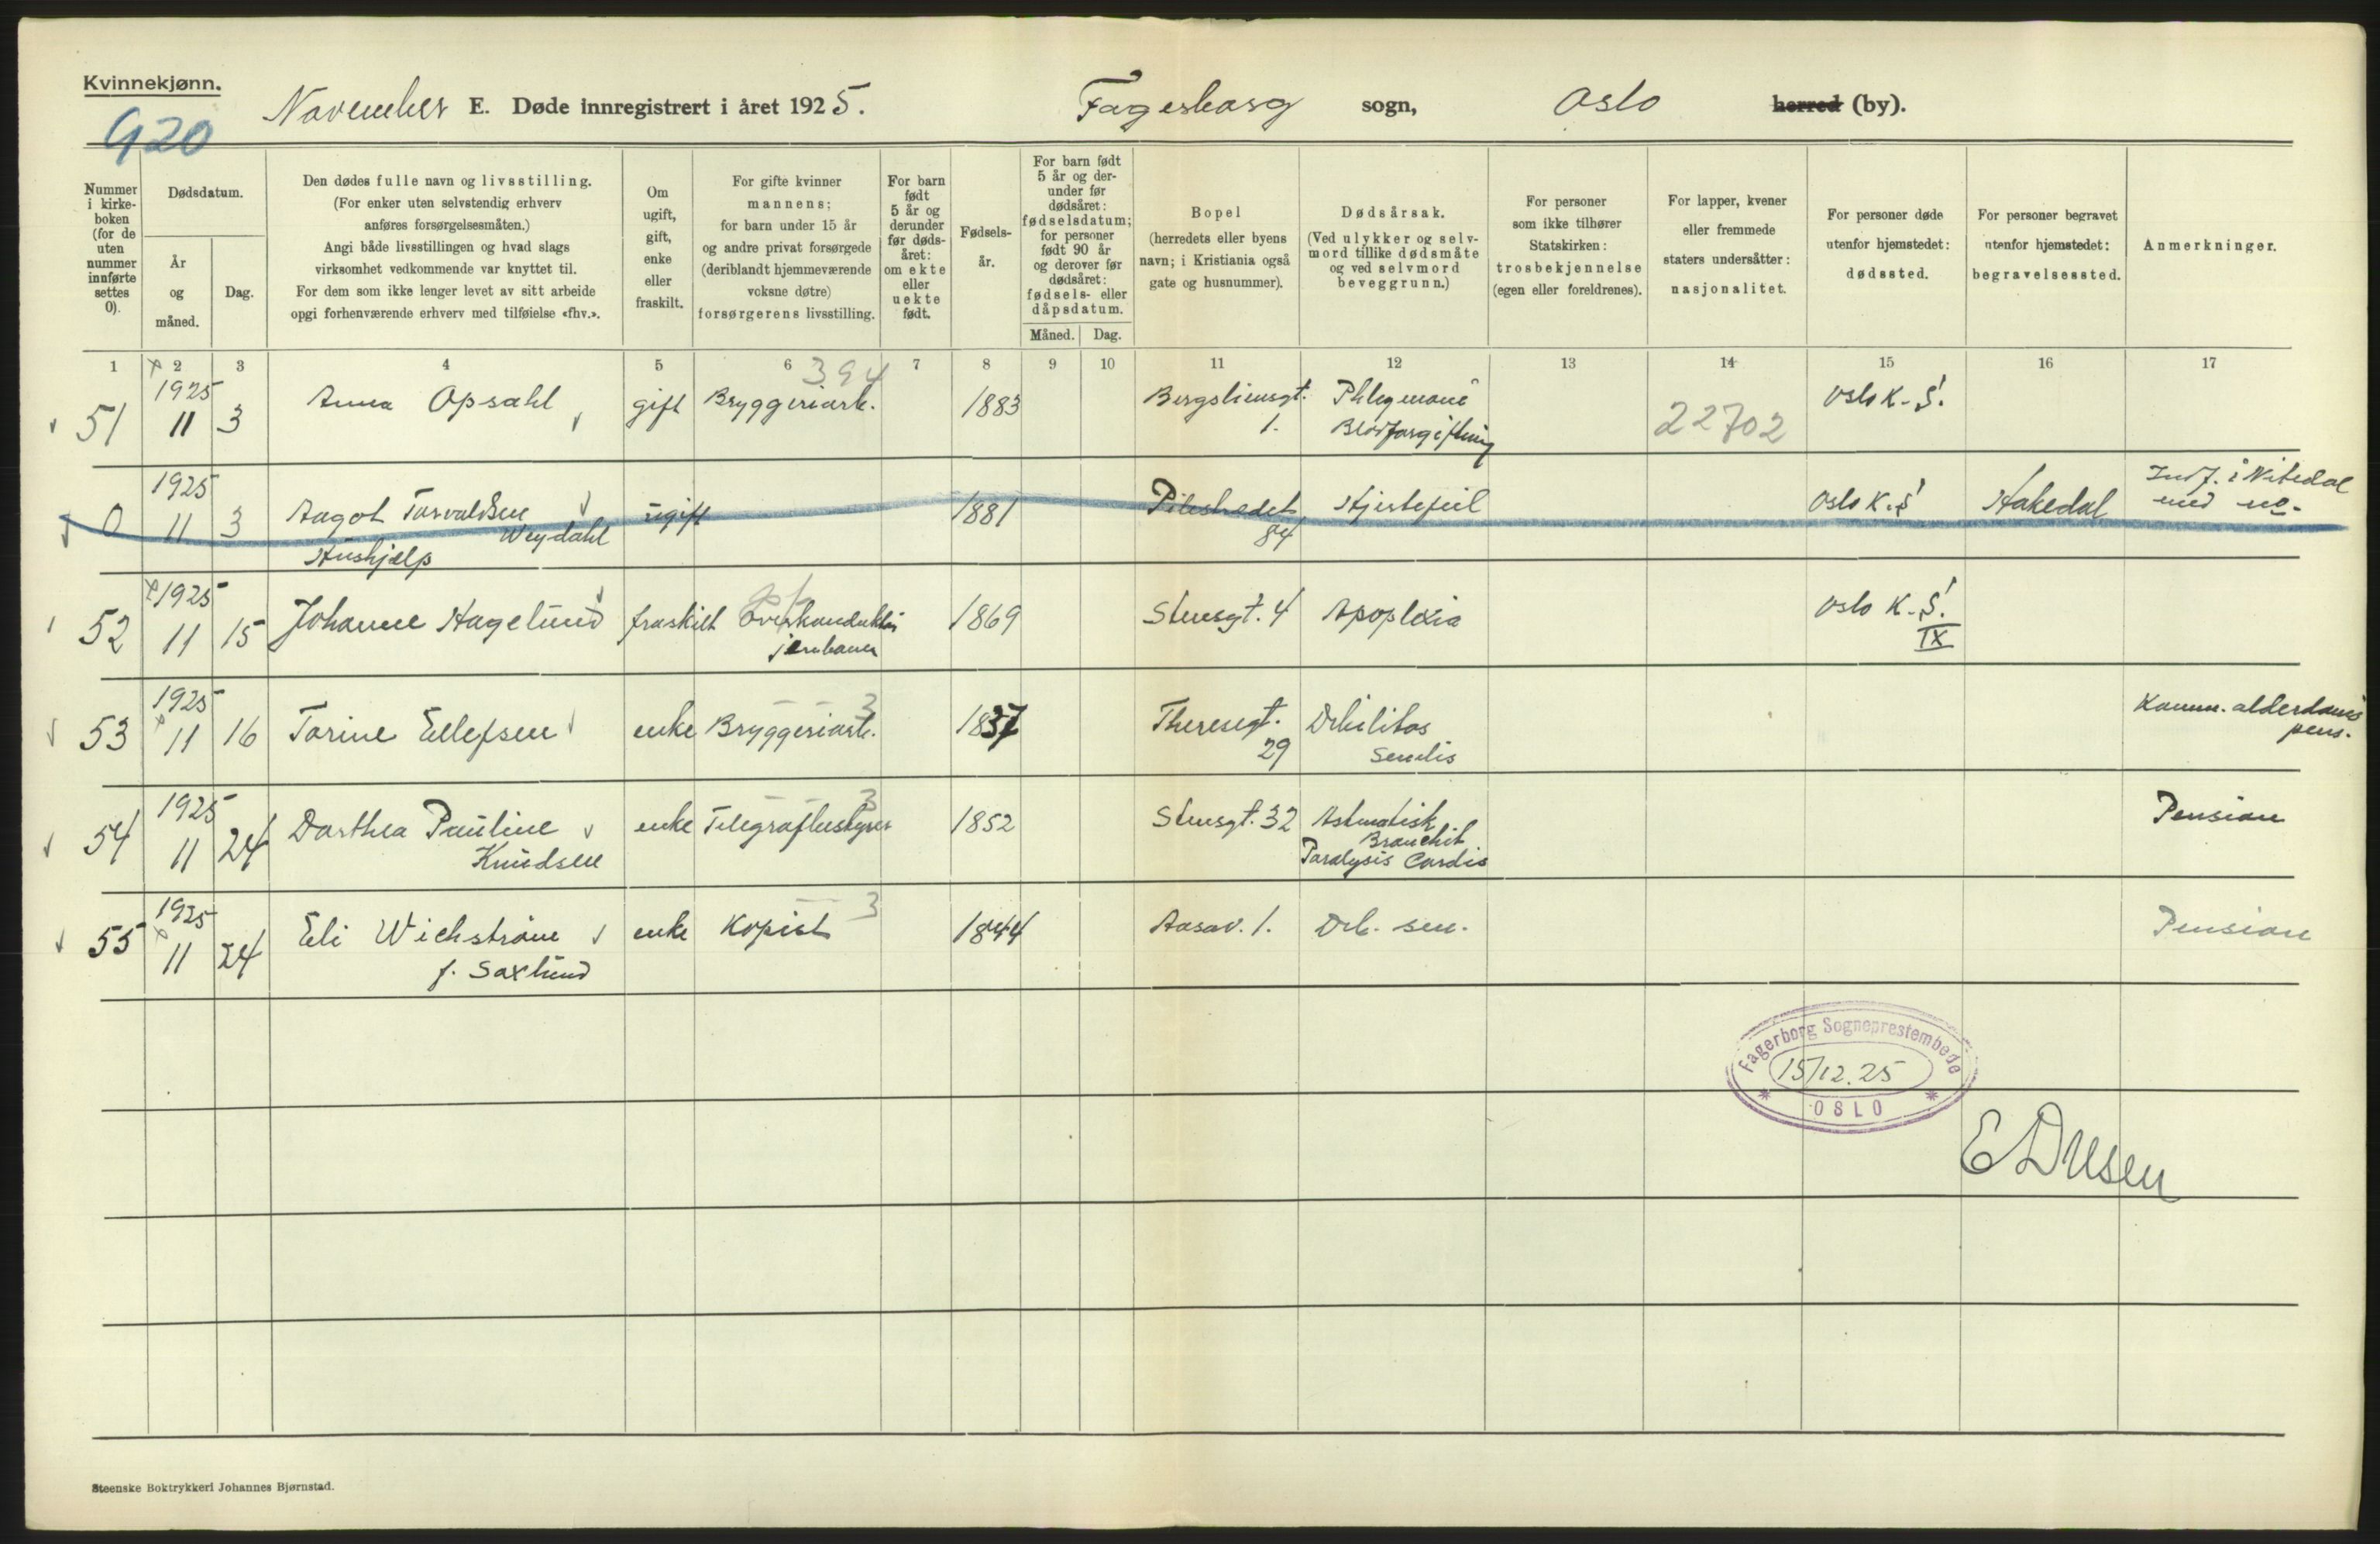 Kvinnekjønn.
920
November E. Døde innregistrert i året 1925. Fagerborg sogn, Oslo herred (by).
Nummer i kirke- boken (for de uten nummer innførte settes 0).
Dødsdatum.
År og måned.
Dag.
Den dødes fulle navn og livsstilling.
(For enker uten selvstendig erhverv
anføres forsørgelsesmåten.)
Angi både livsstillingen og hvad slags
virksomhet vedkommende var knyttet til.
For dem som ikke lenger levet av sitt arbeide
opgi forhenværende erhverv med tilføielse «fhv.».
Om ugift, gift, enke eller fraskilt.
For gifte kvinner
mannens;
for barn under 15 år
og andre privat forsørgede
(deriblandt hjemmeværende
voksne døtre)
forsørgerens livsstilling.
For barn født 5 år og derunder før døds- året: om ekte eller uekte født.
Fødsels- år.
For barn født 5 år og der- under før dødsåret: fødselsdatum; for personer født 90 år og derover før dødsåret: fødsels- eller dåpsdatum.
Måned. Dag.
Bopel
(herredets eller byens
navn; i Kristiania også
gate og husnummer).
Dødsårsak.
(Ved ulykker og selv-
mord tillike dødsmåte
og ved selvmord
beveggrunn.)
For personer
som ikke tilhører
Statskirken:
trosbekjennelse
(egen eller foreldrenes).
For lapper, kvener
eller fremmede
staters undersåtter:
nasjonalitet.
For personer døde
utenfor hjemstedet:
dødssted.
For personer begravet
utenfor hjemstedet:
begravelsessted.
Anmerkninger.
1 2 3 4 5 6 7 8 9 10 11 12 13 14 15 16 17
394
51 1925 11 3 Anna Opsahl gift Bryggeriarb. 1883 Bergsliensgt. 1. Phlegmone Blodforgiftning 22702 Oslo K. S!
0 1925 11 3 Aagot Torvaldsen Weydahl Hushjælp ugift 1881 Pilestredet 84 Hjertefeil Oslo K. S! Hakedal Indf. i Nitedal med no.
52 1925 11 15 Johanne Hagelund fraskilt Overkonduktør jernbanen 1869 Stensgt. 4 Apoplexia Oslo K. S! IX
53 1925 11 16 Torine Ellefsen enke Bryggeriarb. 3 1837 Theresegt. 29 Debilitas senilis Komm. alderdoms pens.
54 1925 11 24 Dorthea Pauline Knudsen enke Telegrafbestyrer 3 1852 Stensgt. 32 Astmatisk Bronchit Paralysis Cordis Pension
55 1925 11 24 Eli Wichstrøm f. Saxlund enke Kopist 3 1844 Aasav. 1. Deb. sen. Pension
Fagerborg Sogneprestembede
15/12.25
* OSLO *
Steenske Boktrykkeri Johannes Bjørnstad.